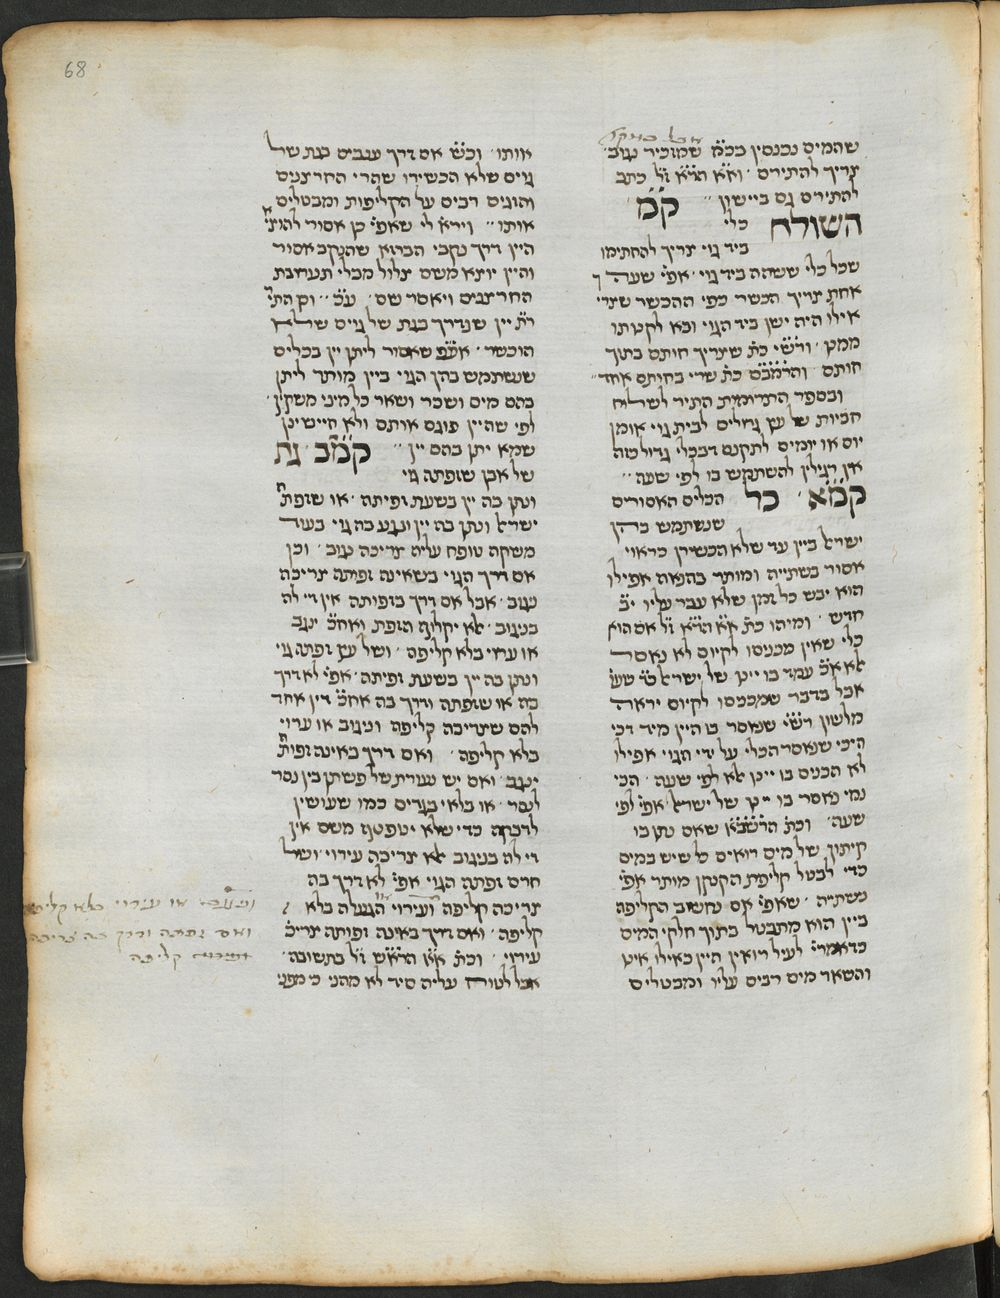 68
שהמים נכנסין בכ״מ שמזכיר נגוב׳
צריך להתירם ׳ וא״א הרא״ש ז״ל כתב
להתירם גם ביישון ״ קמ׳
השולח כלי
ביד גוי צריך להחתימו
שכל כלי ששהה ביד גוי ׳ אפי׳ שעה
אחת צריך הכשר כפי ההכשר שצרי׳
אילו היה ישן ביד הגוי ובא לקנותו
ממנו ׳ ורש״י כת׳ שצריך חותם בתוך
חותם ׳ והרמב״ם כת׳ שרי בחותם אחד ״
ובספר התרומות התיר לשלוח
חביות של עץ גדולים לבית גוי אומן
יום או יומים לתקנם דבכלי גדול כזה
אין רגילין להשתמש בו לפי שעה ״
קמ״א ׳ כל הכלים האסורים
שנשתמש בהן
ישראל ביין עד שלא הכשירן כראוי
אסור בשתייה ומותר בהנאה אפילו
הוא יבש כל זמן שלא עבר עליו י״ב
חדש ׳ ומיהו כת׳ א״א הרא״ש ז״ל אם הוא
כלי שאין מכניסו לקיום לא נאסר
אלא א״כ עמד בו יינו של ישראל כ״ד שעו׳
אבל בדבר שמכניסו לקיום יראה
מלשון רש״י שנאסר בו היין מיד דכי
היכי שנאסר הכלי על ידי הגוי אפילו
לא הכניס בו יינו אלא לפי שעה ׳ הכי
נמי נאסר בו יינו של ישראל אפי׳ לפי
שעה ׳ וכת׳ הרשב״א שאם נתן בו
קיתון של מים רואים כל שיש במים
כדי לבטל קליפת הקנקן מותר אפי׳
בשתיה ׳ שאפי׳ אם נחשוב הקליפה
ביין הוא מתבטל בתוך חלקי המים
כדאמרי׳ לעיל רואין היין כאילו אינו
והשאר מים רבים עליו ומבטלים
אותו ׳ וכ״ש אם דרך ענבים בגת של
גוים שלא הכשירו שהרי החרצנים
והזגים רבים על הקליפות ומבטלים
אותו ״ וירא׳ לי שאפי׳ כן אסור להוצי׳
היין דרך נקבי הברזא שהנקב אסור
והיין יוצא משם צלול מבלי תערובת
החרצנים ויאסר שם ׳ ע״כ ״ וכן התי׳
ר״ת יין שנדרך בגת של גוים שלא
הוכשר ׳ אע״פ שאסור ליתן יין בכלים
שנשתמש בהן הגוי ביין מותר ליתן
בהם מים ושכר ושאר כל מיני משקין ׳
לפי שהיין פוגם אותם ולא חיישינן
שמא יתן בהם יין ״ קמ״ב גת
של אבן שזפתה גוי
ונתן בה יין בשעת זפיתה ׳ או שזפת׳
ישראל ונתן בה יין ונגע בה גוי בעוד
משקה טופח עליה צריכה נגוב ׳ וכן
אם דרך הגוי בשאינה זפותה צריכה
נגוב ׳ אבל אם דרך בזפותה אין די לה
בניגוב ׳ אלא יקלוף הזפת ואח״כ ינגב
או ערוי בלא קליפה ׳ ושל עץ זפתה גוי
ונתן בה יין בשעת זפיתה ׳ אפי׳ לא דרך
בה או שזפתה ודרך בה אח״כ דין אחד
להם שצריכה קליפה וניגוב או ערוי
בלא קליפה ׳ ואם דרך באינה זפות׳
ינגב ׳ ואם יש נעורת של פשתן בין נסר
לנסר ׳ או בלאי בגדים כמו שעושין
לדבקה כדי שלא יטפטף משם אין
די לה בניגוב אלא צריכה עירוי ׳ ושל
חרס זפתה הגוי אפי׳ לא דרך בה
צריכה קליפה ועירוי הגעלה בלא
קליפה ׳ ואם דרך באינה זפותה צריכ׳
עירוי ׳ וכת׳ א״א הרא״ש ז״ל בתשובה ׳
אבל לטוח עליה סיד לא מהני כי מפני
וניגוב או עירוי בלא קליפה
ואם זפתה ודרך בה צריכה
קליפה